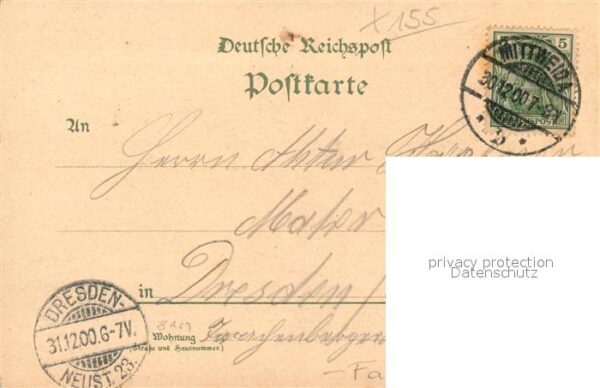 x 155
Deutsche Reichspost
Postkarte
5
REICHSPOST
MITTWEIDA
30.12.00.7-8N.
An
Herrn
Maler
privacy protection
Datenschutz
in Dresden
DRESDEN-
31.12.00.6-7V.
NEUST. 23.
Wohnung
(Straße und Hausnummer.)